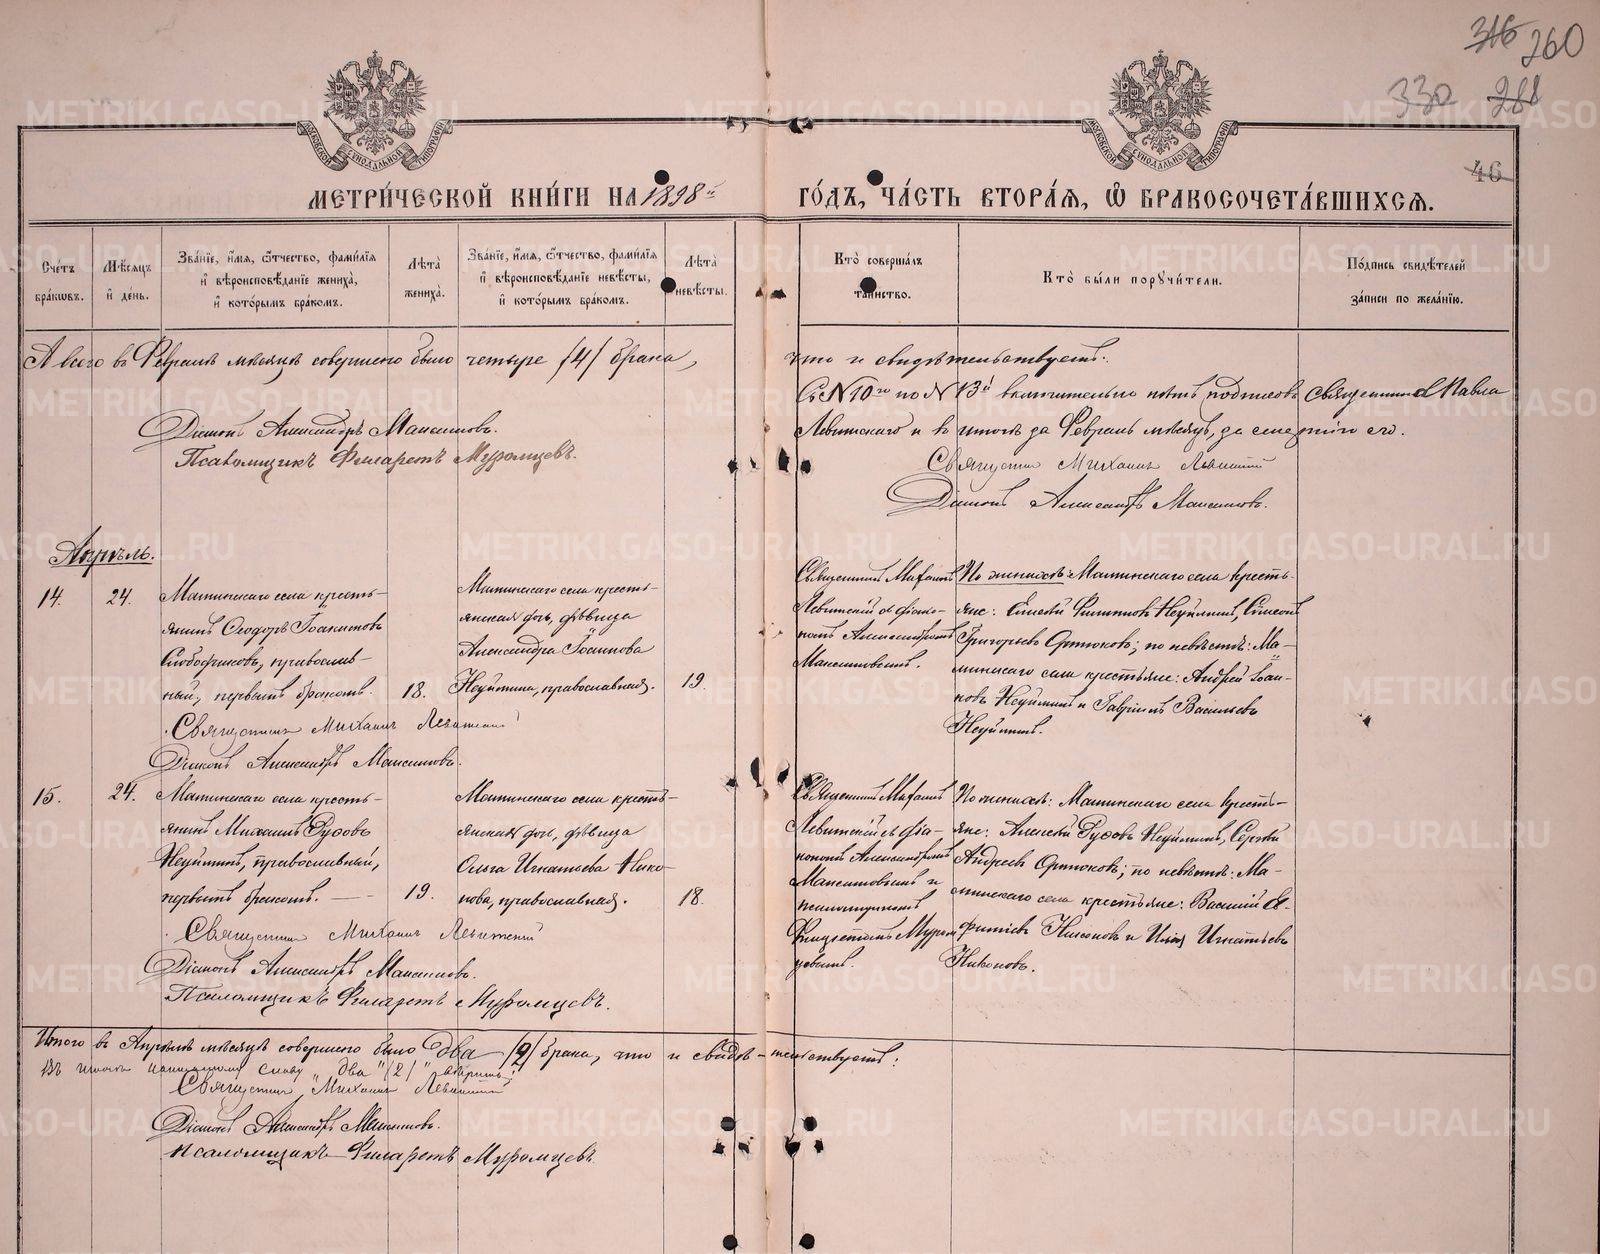 316 260
330 288
46
МОСКОВСКОЙ СѴНОДАЛЬНОЙ ТИПОГРАФІИ
МОСКОВСКОЙ СѴНОДАЛЬНОЙ ТИПОГРАФІИ
МЕТРИ́ЧЕСКОЙ КНИ́ГИ НА 1898й ГО́ДЪ, ЧА́СТЬ ВТОРА́Я, Ѡ БРАКОСОЧЕТА́ВШИХСЯ.
Сче́тъ бра́кѡвъ.
Мѣ́сяцъ и де́нь.
Зва́нїе, и́мя, ѻ҆́тчество, фами́лїя и вѣроисповѣ́данїе жениха̀, и кото́рымъ бра́комъ.
Лѣ́та жениха̀.
Зва́нїе, и́мя, ѻ҆́тчество, фами́лїя и вѣроисповѣ́данїе невѣ́сты, и кото́рымъ бра́комъ.
Лѣ́та невѣ́сты.
Кто̀ соверша́лъ та́инство.
Кто̀ бы́ли порꙋчи́тели.
По́дпись свидѣ́телей за́писи по жела́нїю.
А всего въ Февралѣ мѣсяцѣ совершено было четыре /4/ брака, что и свидѣтельствуемъ.
Діаконъ Александръ Максимовъ.
Псаломщикъ Филаретъ Муромцевъ.
Съ № 10го по № 13й включительно нѣтъ подписовъ Священника Павла
Левитскаго и въ итогѣ за Февраль мѣсяцъ, за смертію его.
Священникъ Михаилъ Левитскій
Діаконъ Александръ Максимовъ.
Апрѣль.
14.
24.
Маминскаго села кресть-
янинъ Ѳеодоръ Іоакимовъ
Слободчиковъ, православ-
ный, первымъ бракомъ.
18.
Маминскаго села кресть-
янская дочь, дѣвица
Александра Іоаннова
Неуймина, православная.
19.
Священникъ Михаилъ
Левитскій съ діако-
номъ Александромъ
Максимовымъ.
По женихѣ: Маминскаго села кресть-
яне: Елисей Филипповъ Неуйминъ, Симеонъ
Григорьевъ Ортюковъ; по невѣстѣ: Ма-
минскаго села крестьяне: Андрей Іоан-
новъ Неуйминъ и Гавріилъ Васильевъ
Неуйминъ.
Священникъ Михаилъ Левитскій
Діаконъ Александръ Максимовъ.
15.
24.
Маминскаго села кресть-
янинъ Михаилъ
Неуйминъ, православный,
первымъ бракомъ.
19.
Маминскаго села кресть-
янская дочь, дѣвица
Ольга Игнатьева Нико-
нова, православная.
18.
Священникъ Михаилъ
Левитскій съ діа-
кономъ Александромъ
Максимовымъ и
псаломщикомъ
Филаретомъ Муром-
цевымъ.
По женихѣ: Маминскаго села кресть-
яне: Алексѣй Неуйминъ, Сергѣй
Андреевъ Ортюковъ; по невѣстѣ: Ма-
минскаго села крестьяне: Василій
Никоновъ и Илія Игнатьевъ
Никоновъ.
Священникъ Михаилъ Левитскій
Діаконъ Александръ Максимовъ.
Псаломщикъ Филаретъ Муромцевъ.
Итого въ Апрѣлѣ мѣсяцѣ совершено было два /2/ брака, что и свидѣ-тельствуемъ:
Въ итогѣ написанному слову „два“ /2/ вѣрить.
Священникъ Михаилъ Левитскій
Діаконъ Александръ Максимовъ.
Псаломщикъ Филаретъ Муромцевъ.
METRIKI.GASO-URAL.RU